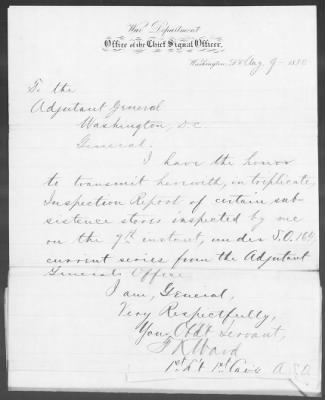 War Department
Office of the Chief Signal Officer,
Washington, D.C. Aug. 9 1880
To the
Adjutant General
Washington, D.C.
General.
I have the honor
to transmit herewith, in triplicate,
Inspection Report of certain sub
sistence stores inspected by me
on the 7th instant, under S.O. 169,
current series from the Adjutant
Generals Office
I am, General,
Very Respectfully,
Your Obdt Servant,
F K Ward
1st Lt 1st Cav.